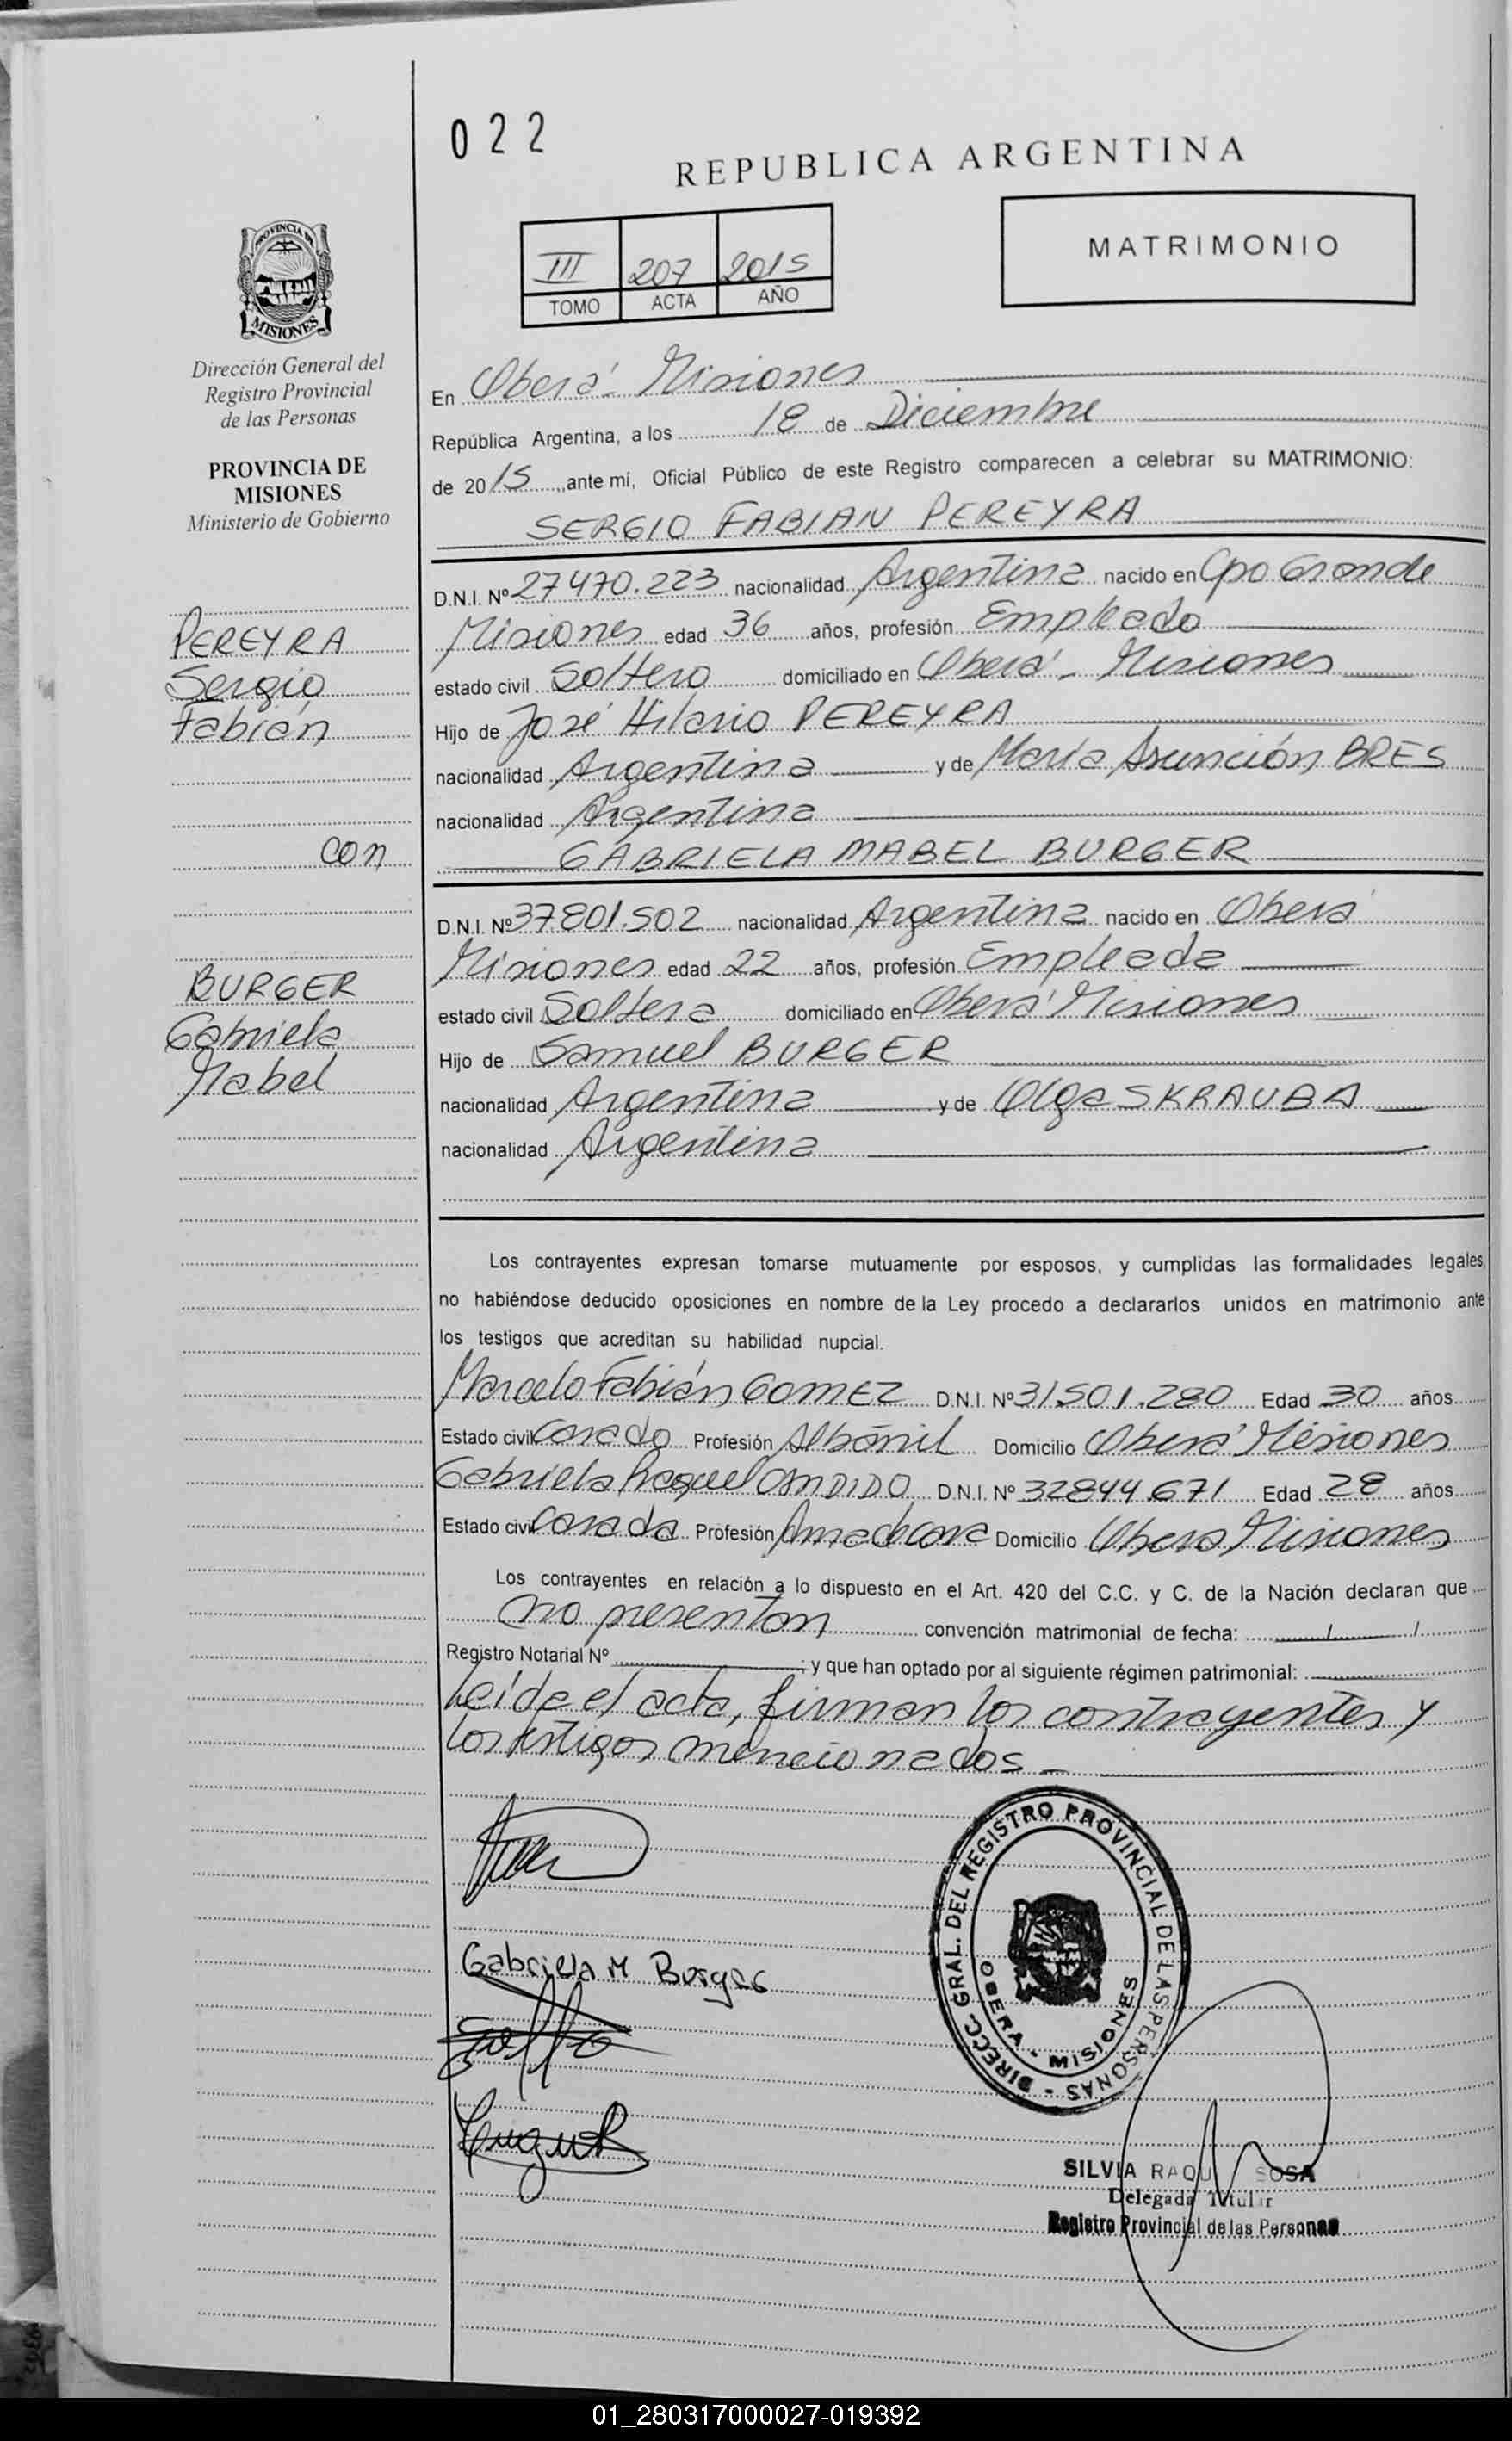 022
REPUBLICA ARGENTINA
MATRIMONIO
III 207 2015
TOMO ACTA AÑO
PROVINCIA DE
MISIONES
Dirección General del
Registro Provincial
de las Personas
PROVINCIA DE
MISIONES
Ministerio de Gobierno
PEREYRA
Sergio
Fabián
con
BURGER
Gabriela
Mabel
En Oberá - Misiones
República Argentina, a los 18 de Diciembre
de 2015, ante mí, Oficial Público de este Registro comparecen a celebrar su MATRIMONIO:
SERGIO FABIAN PEREYRA
D.N.I. Nº 27470.223 nacionalidad Argentina nacido en Cpo Grande
Misiones edad 36 años, profesión Empleado
estado civil Soltero domiciliado en Oberá - Misiones
Hijo de José Hilario PEREYRA
nacionalidad Argentina y de María Asunción BRES
nacionalidad Argentina
GABRIELA MABEL BURGER
D.N.I. Nº 37801.502 nacionalidad Argentina nacido en Oberá
Misiones edad 22 años, profesión Empleada
estado civil Soltera domiciliado en Oberá Misiones
Hijo de Samuel BURGER
nacionalidad Argentina y de Olga SKRAUBA
nacionalidad Argentina
Los contrayentes expresan tomarse mutuamente por esposos, y cumplidas las formalidades legales,
no habiéndose deducido oposiciones en nombre de la Ley procedo a declararlos unidos en matrimonio ante
los testigos que acreditan su habilidad nupcial.
Marcelo Fabián GOMEZ D.N.I. Nº 31.501.280 Edad 30 años
Estado civil Casado Profesión Albánil Domicilio Oberá Misiones
Gabriela Raquel CANDIDO D.N.I. Nº 32844.671 Edad 28 años
Estado civil Casada Profesión Ama de casa Domicilio Oberá Misiones
Los contrayentes en relación a lo dispuesto en el Art. 420 del C.C. y C. de la Nación declaran que
no presentan convención matrimonial de fecha: / /
Registro Notarial Nº ; y que han optado por al siguiente régimen patrimonial:
Leída el acta, firman los contrayentes y
los testigos mencionados -
Gabriela M Burger
DIRECC. GRAL. DEL REGISTRO PROVINCIAL DE LAS PERSONAS -
OBERA - MISIONES
SILVIA RAQU SOSA
Delegada Titular
Registro Provincial de las Personas
01_280317000027-019392